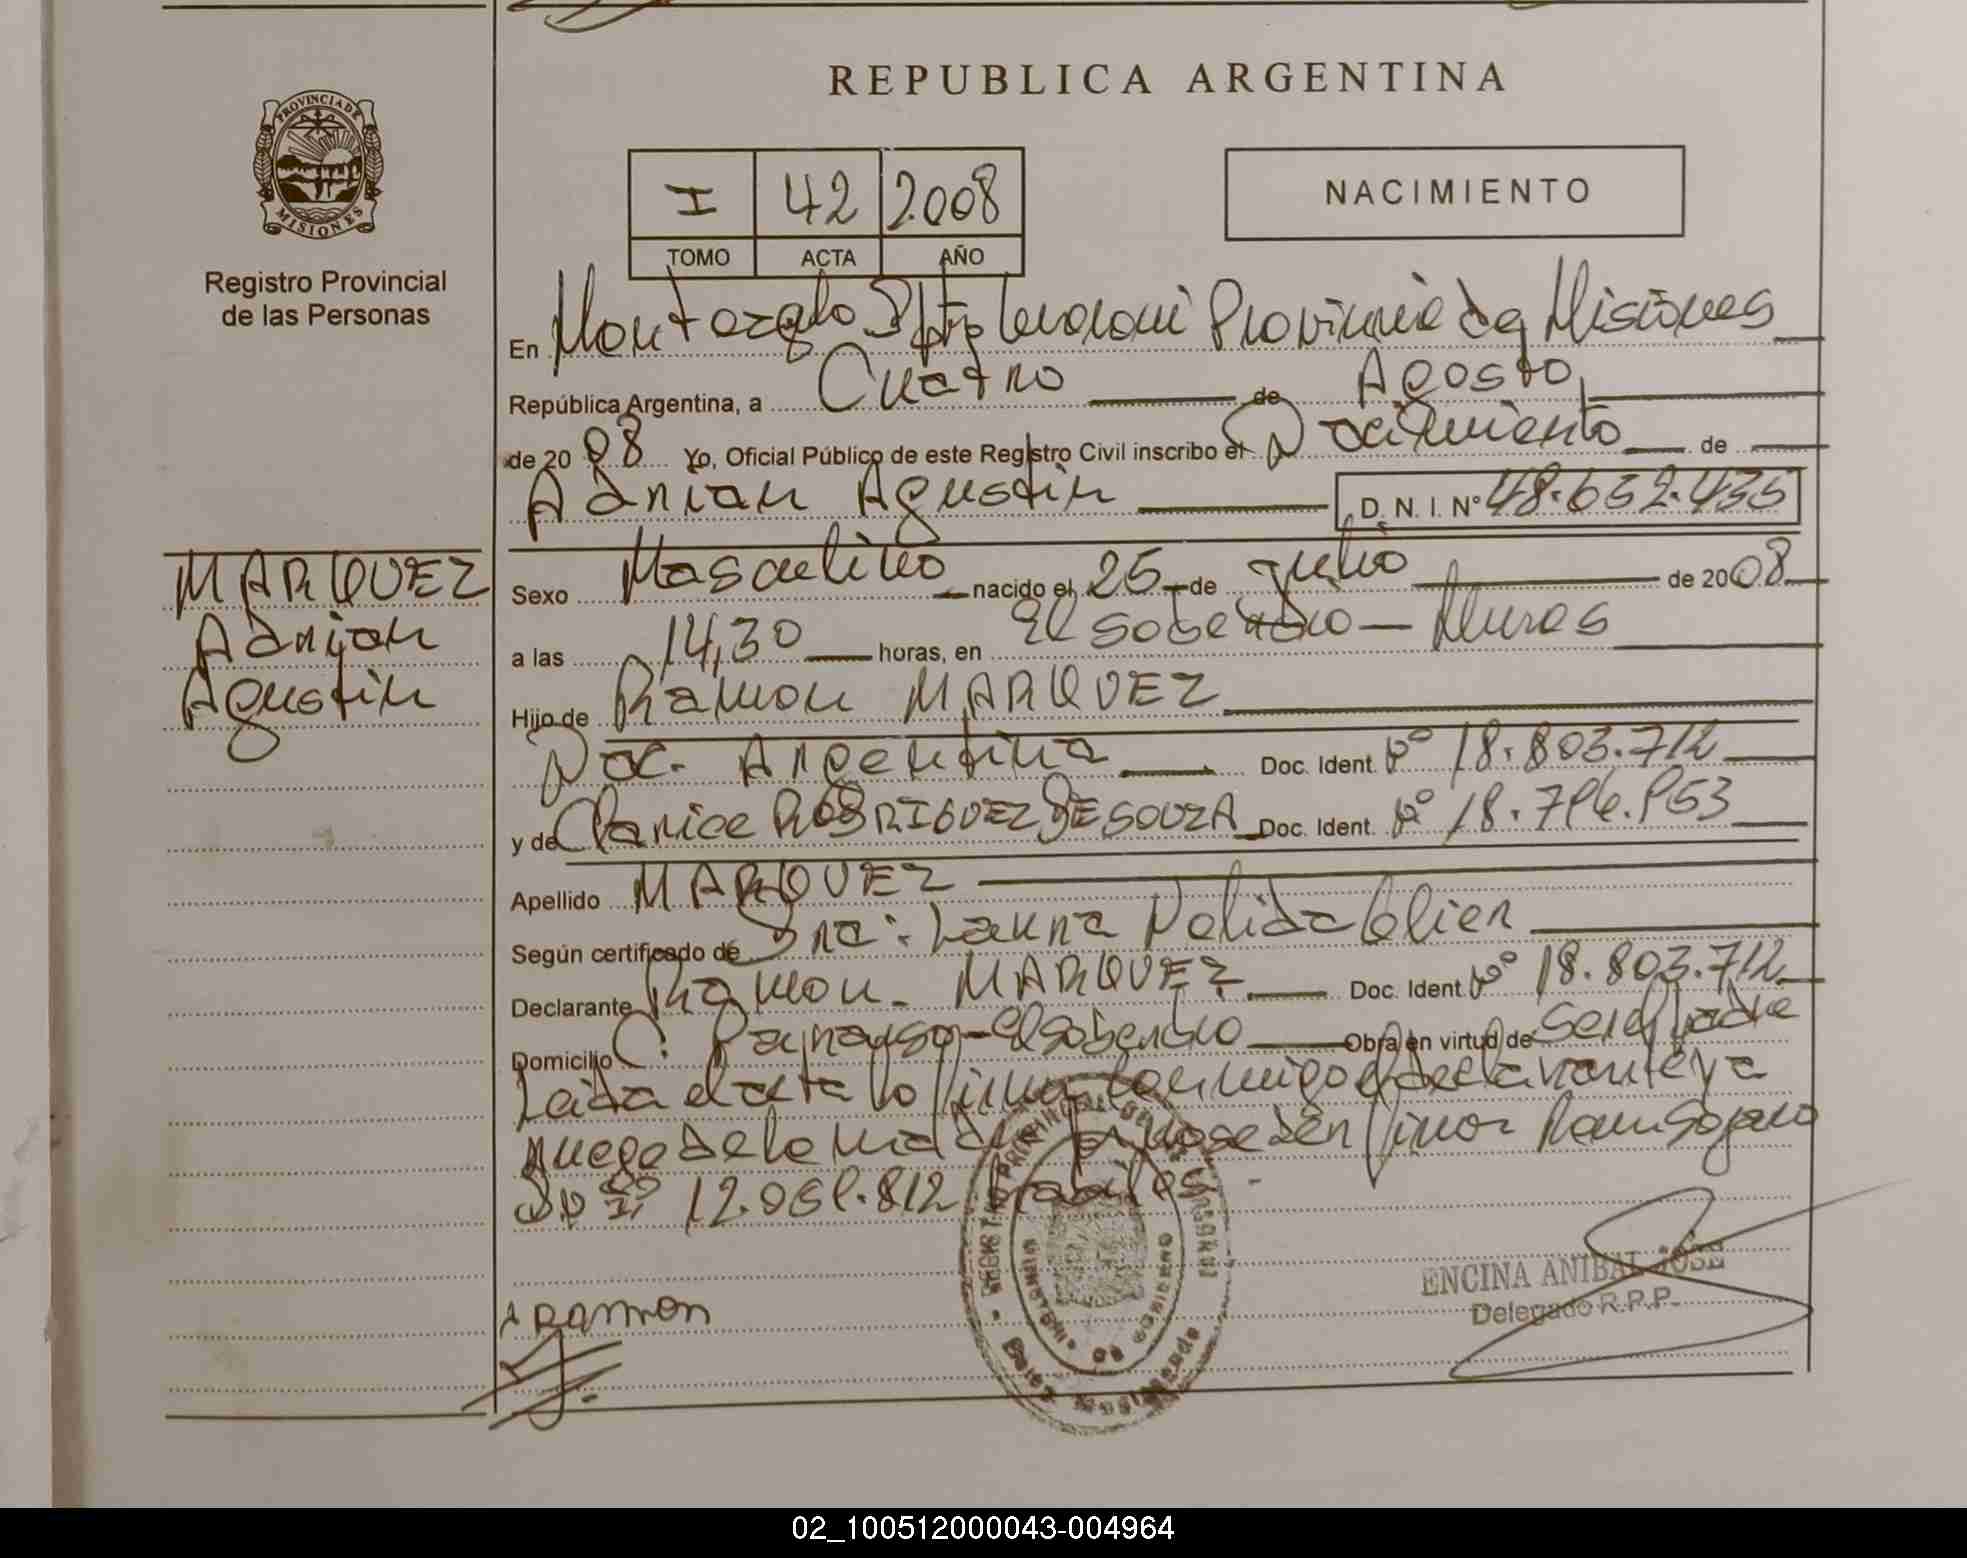 REPUBLICA ARGENTINA
PROVINCIA DE MISIONES
Registro Provincial
de las Personas
I 42 2008
TOMO ACTA AÑO
NACIMIENTO
En Montecarlo Dpto Provincia de Misiones
República Argentina, a Cuatro de Agosto
de 2008 Yo, Oficial Público de este Registro Civil inscribo el Nacimiento de
Adrian Agustin D. N. I. N° 48.652.435
MARQUEZ
Adrian
Agustin
Sexo Masculino nacido el 25 de Julio de 2008
a las 14,30 horas, en El Soberbio -
Hijo de Ramon MARQUEZ
Nac. Argentina Doc. Ident. N° 18.803.712
y de Clarice RODRIGUEZ DE SOUZA Doc. Ident. N°
Apellido MARQUEZ
Según certificado de Dra: Laura Nelida
Declarante Ramon MARQUEZ Doc. Ident. N° 18.803.712
Domicilio C. El Soberbio Obra en virtud de Ser el Padre
Leida el acta lo firma conmigo el declarante y a
ruego de la madre por no saber firmar
habiles
A Ramon
ENCINA ANIBAL JOSE
Delegado R.P.P.
02_100512000043-004964